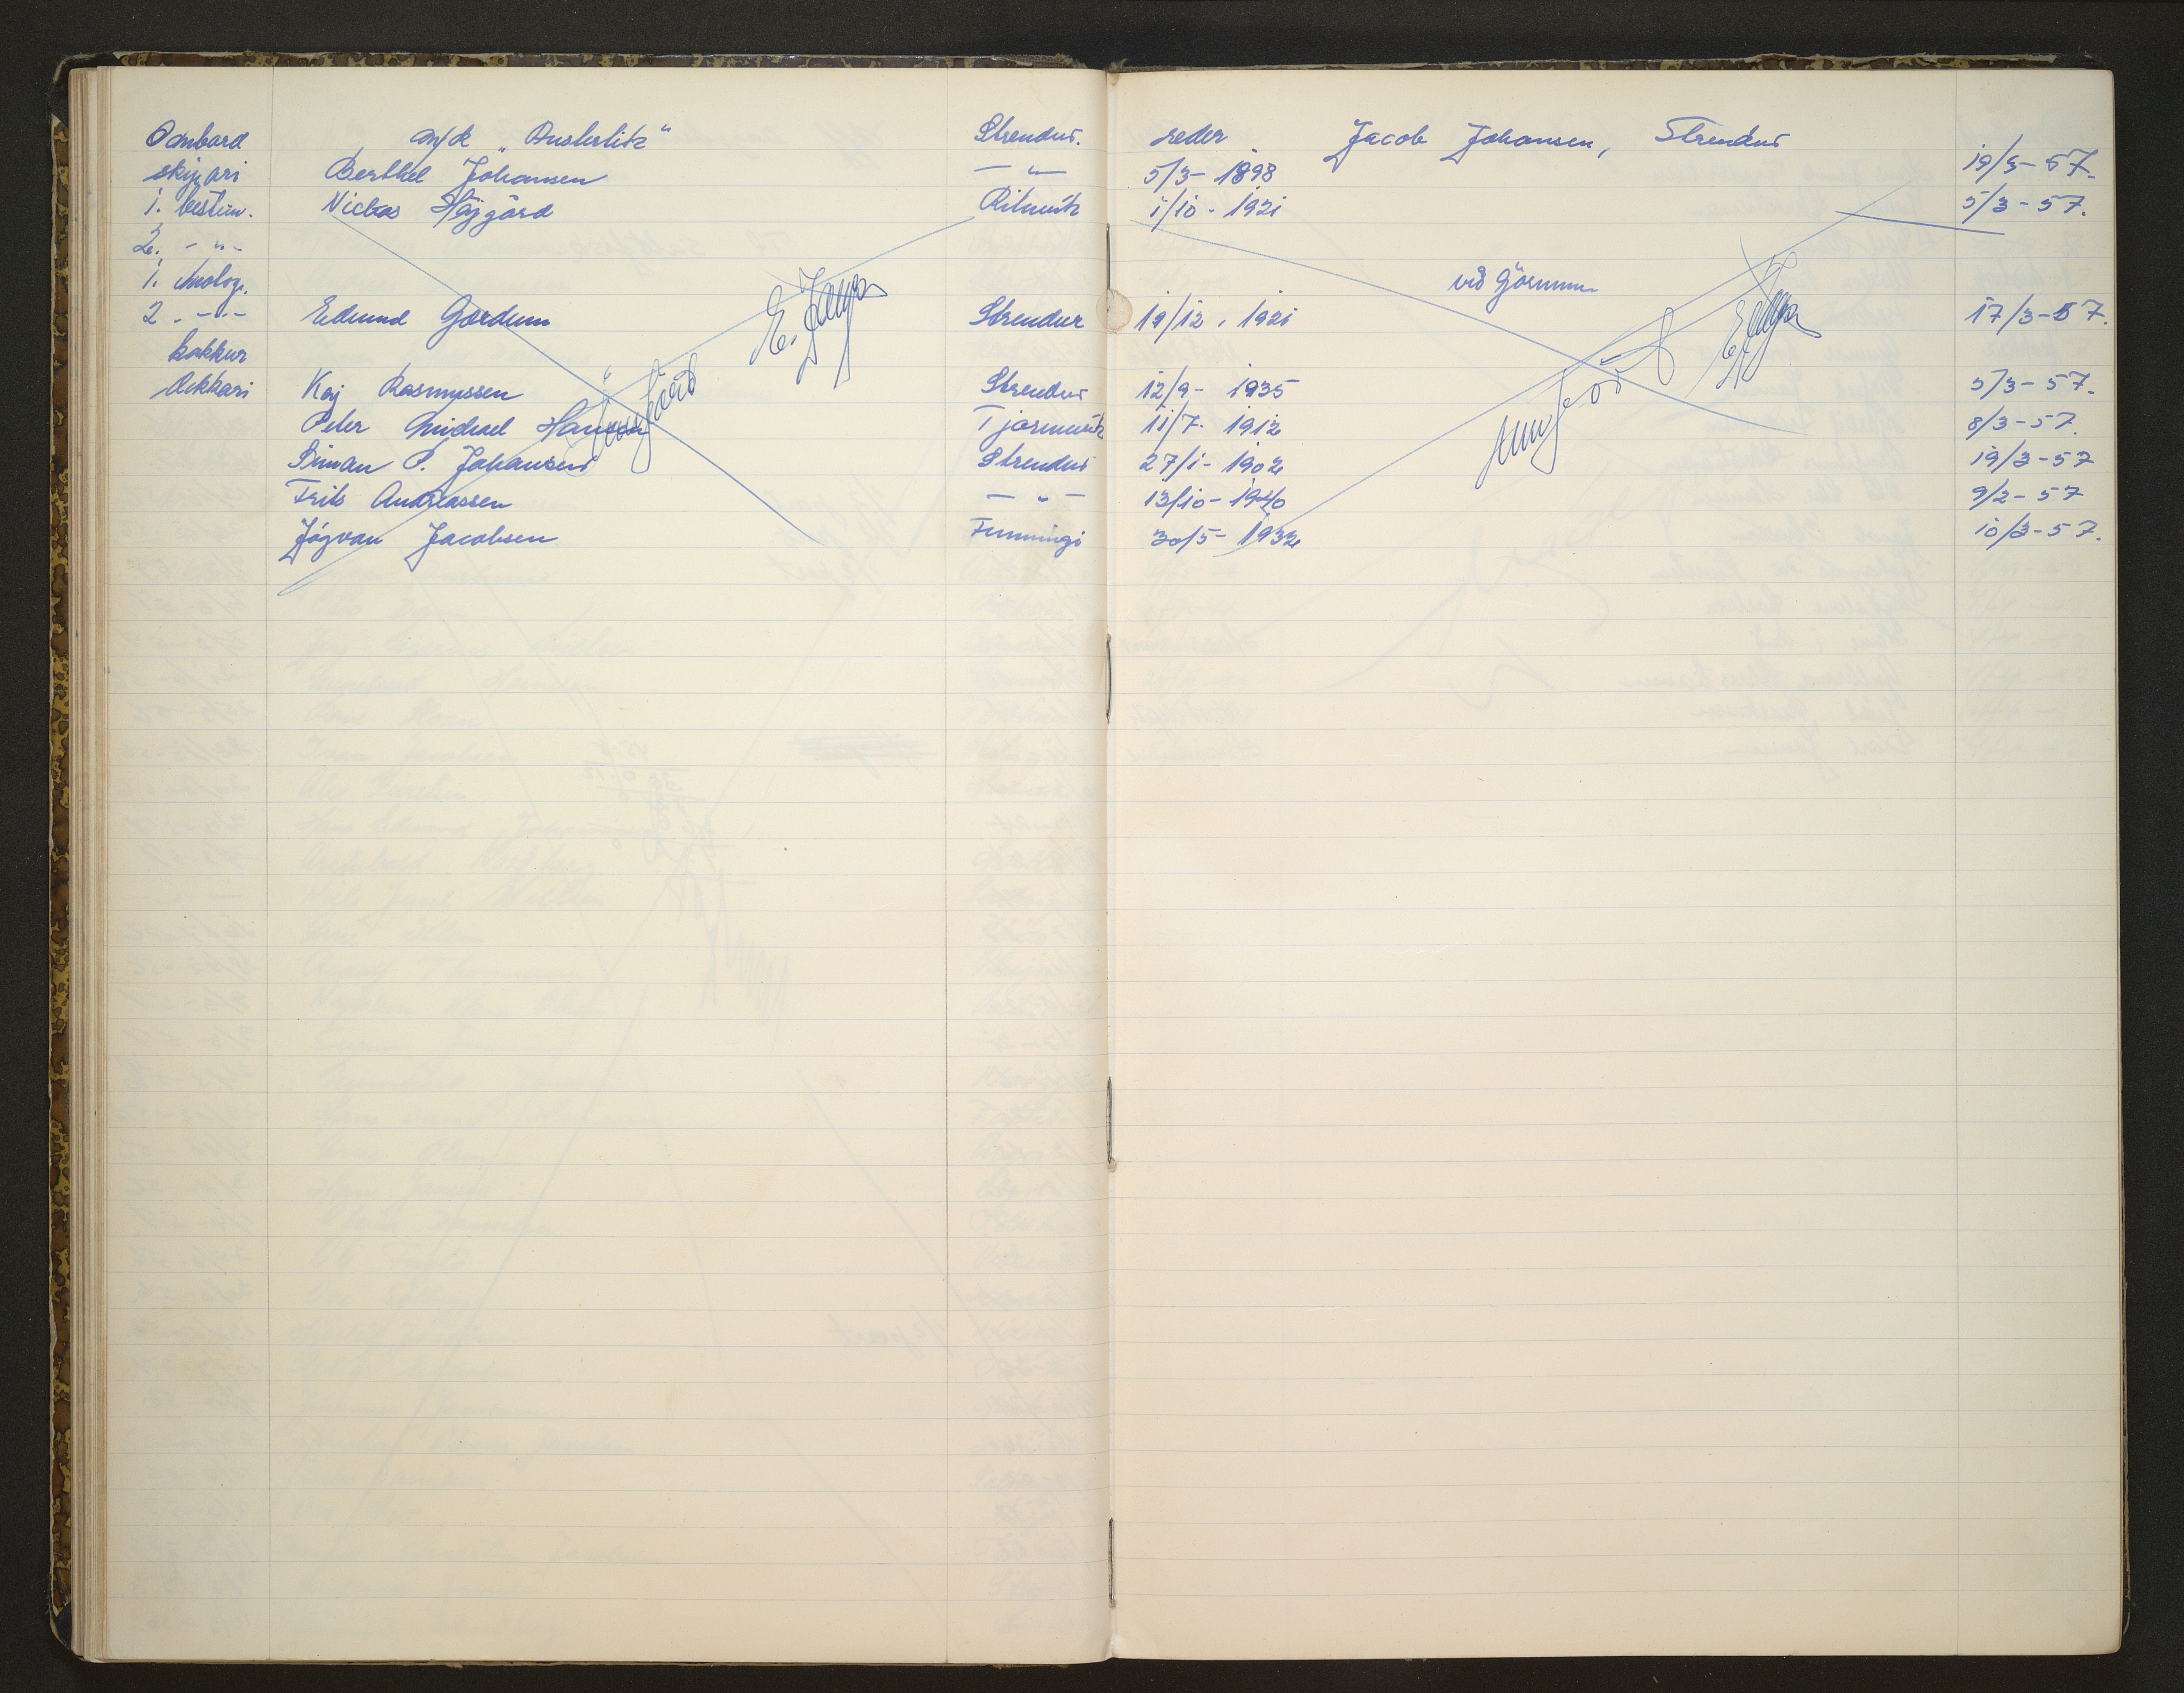 Ombord m/k „Austerlitz“ Strendur. reder Jacob Johansen, Strendur
skipari Berthel Johansen —"— 5/3- 1898 19/3-57.
1. bestm. Nicklas Højgård Rituvík 1/10 - 1921 5/3-57.
2. -"-
1. motorp. við Gørnum
2. -"- Edmund Gørdum Strendur 19/12, 1921 17/3-57.
kokkur
dekkari Kaj Rasmussen Strendur 12/9- 1935 5/3-57.
Peter Michael Hansen Tjørnuvík 11/7- 1912 8/3-57.
Siman P. Johansen Strendur 27/1- 1902 19/3-57
Frits Andreassen —"— 13/10-1940 9/2-57
Jógvan Jacobsen Funningi 30/5-1932 10/3-57.